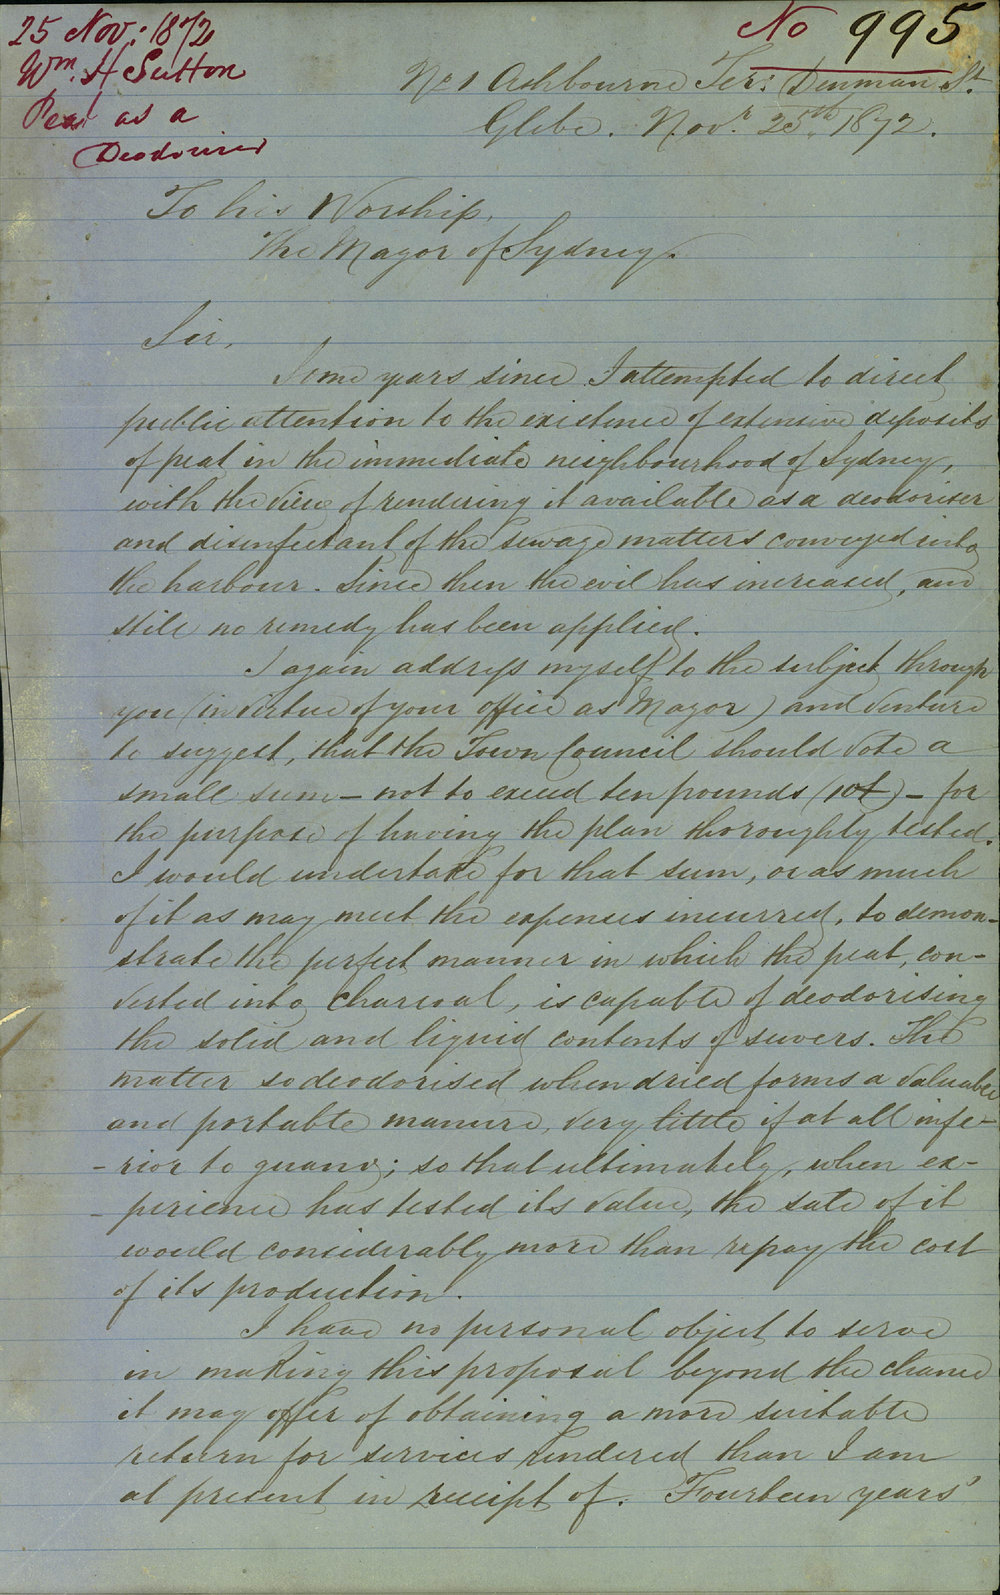 25 Nov: 1872
Wm. H Sutton
Peat as a
Deodoriser
No 995
No 1 Ashbourne Ter: Denman St.
Glebe. Novr. 25th 1872.
To his Worship,
The Mayor of Sydney.
Sir,
Some years since I attempted to direct
public attention to the existence of extensive deposits
of peat in the immediate neighbourhood of Sydney,
with the view of rendering it available as a deodoriser
and disinfectant of the sewage matters conveyed into
the harbour. Since then the evil has increased, and
still no remedy has been applied.
I again address myself to the subject through
you (in virtue of your office as Mayor) and venture
to suggest, that the Town Council should vote a
small sum – not to exceed ten pounds (10£) – for
the purpose of having the plan thoroughly tested.
I would undertake for that sum, or as much
of it as may meet the expenses incurred, to demon-
strate the perfect manner in which the peat, con-
verted into charcoal, is capable of deodorising
the solid and liquid contents of sewers. The
matter so deodorised when dried forms a valuable
and portable manure, very little if at all infe-
-rior to guano; so that ultimately, when ex-
-perience has tested its value, the sale of it
would considerably more than repay the cost
of its production.
I have no personal object to serve
in making this proposal beyond the chance
it may offer of obtaining a more suitable
return for services rendered than I am
at present in receipt of. Fourteen years'